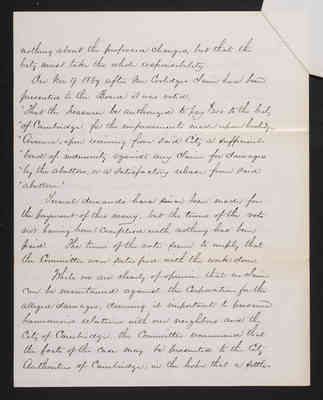 nothing about the proposed changes, but that the
City must take the whole responsibility
On Nov 17 1869 after Mr Coolidges claim had been
presented to the Board it was voted,
"That the Treasurer be authorized to pay to the City
of Cambridge for the improvements made upon
Avenue, upon receiving from said City a sufficient
bond of indemnity against any claim for damages
by the abuttors, or a satisfactory release from said
abuttors."
Several demands have since been made for
the payment of this money, but the terms of the vote
not having been complied with nothing has been
paid. The terms of the vote seem to imply that
the Committee were satisfied with the work done
While we are clearly of opinion that no claim
can be maintained against the Corporation for the
alleged damages, deeming it important to preserve
harmonious relations with our neighbors and the
City of Cambridge, the Committee recommend that
the facts of the case may be presented to the City
Authorities of Cambridge, in the hope that a settle-